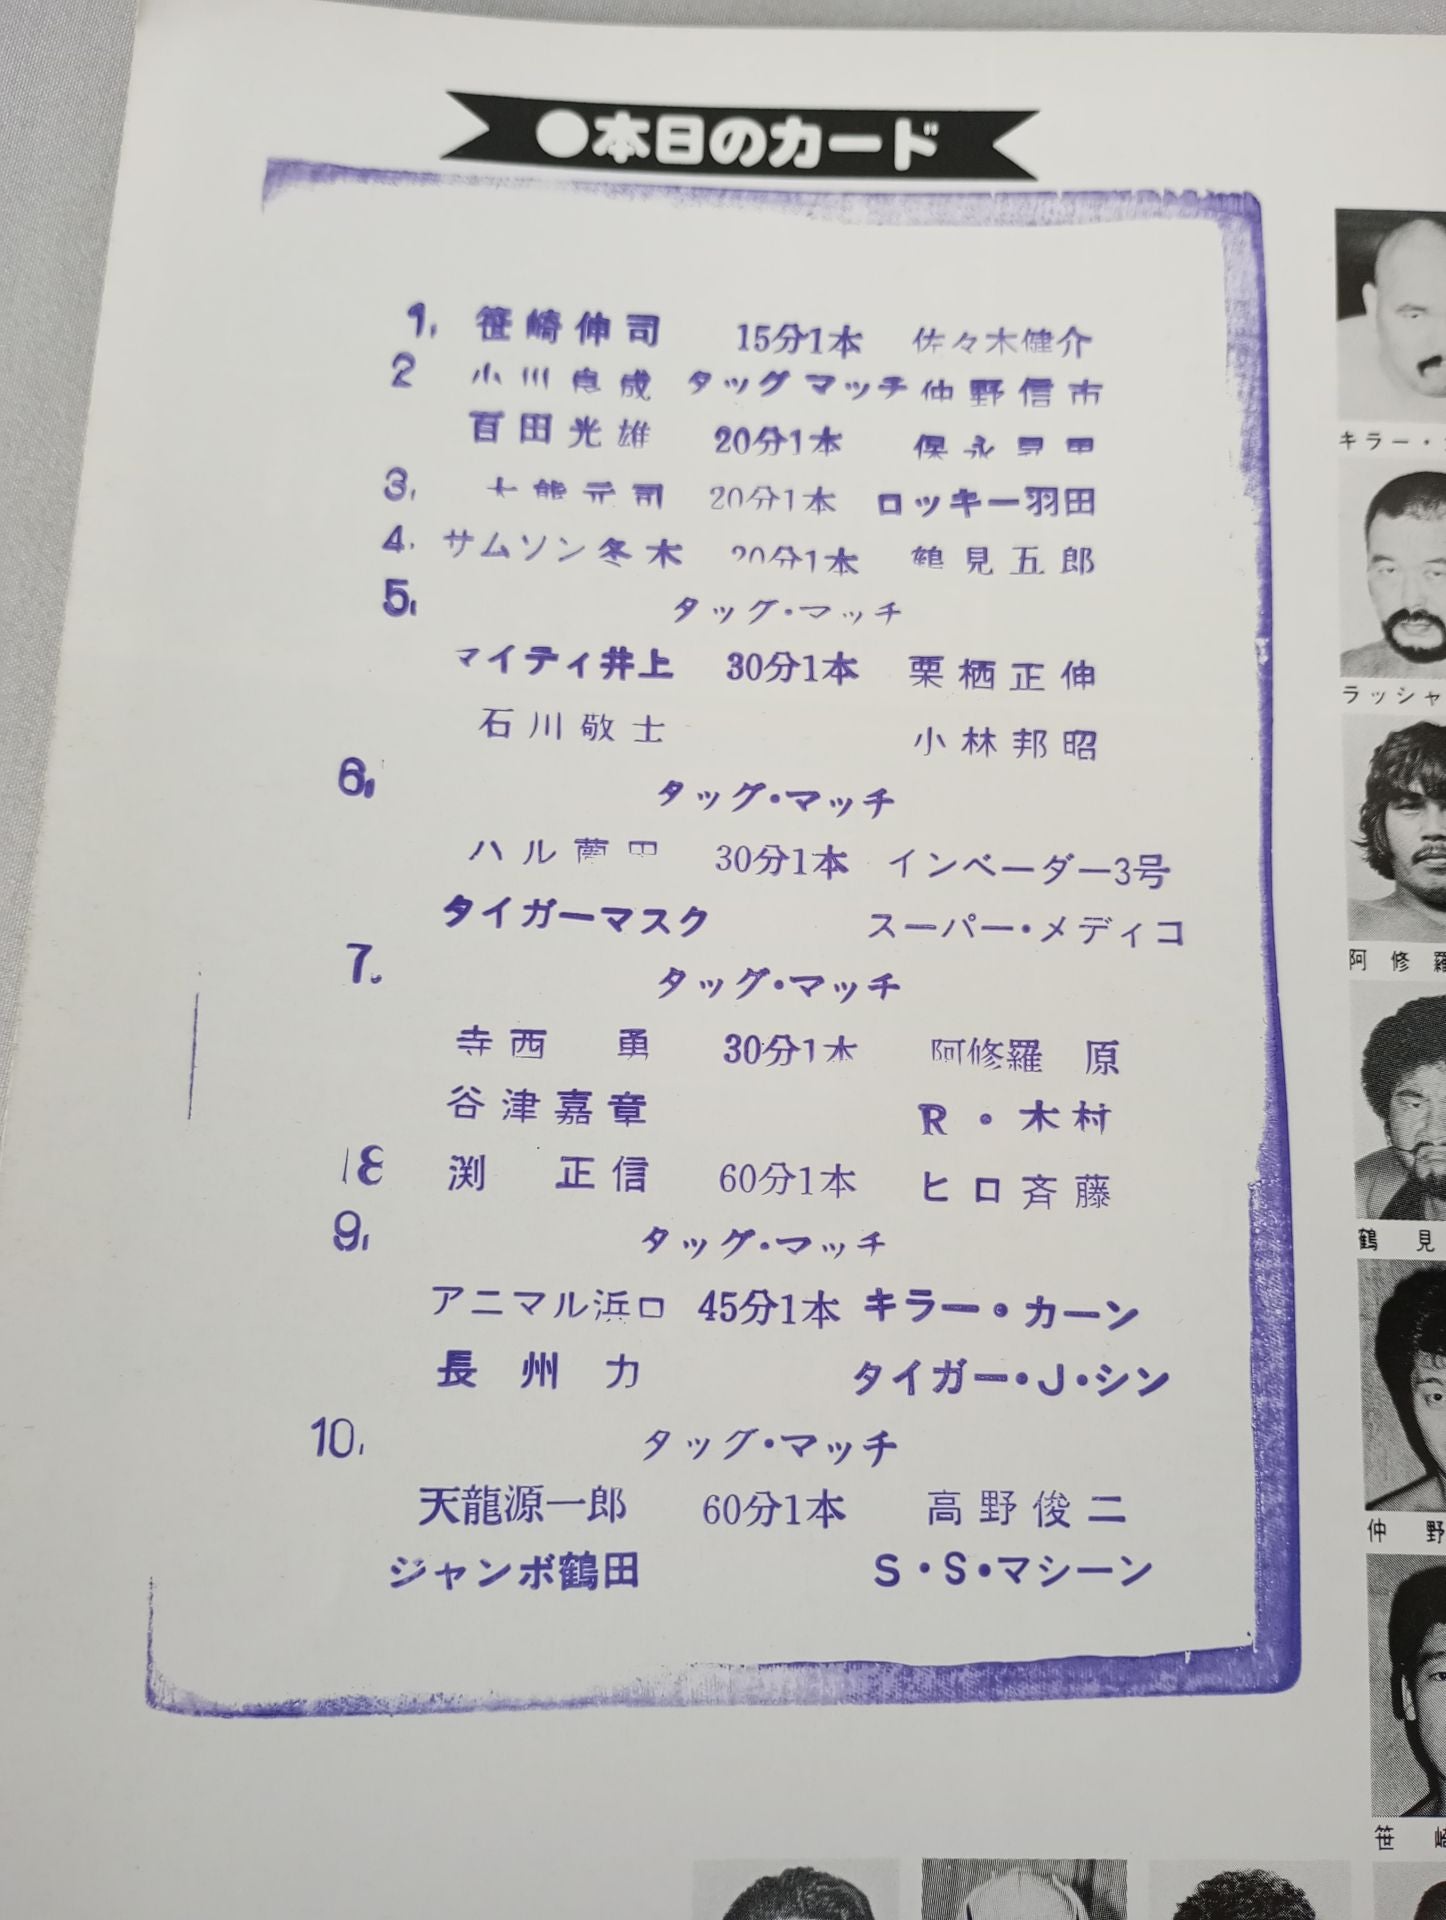 ●本日のカード
1, 笹崎伸司 15分1本 佐々木健介
2 小川良成 タッグマッチ 仲野信市
百田光雄 20分1本 保永昇男
3, 大熊元司 20分1本 ロッキー羽田
4. サムソン冬木 20分1本 鶴見五郎
5, タッグ・マッチ
マイティ井上 30分1本 栗栖正伸
石川敬士 小林邦昭
6, タッグ・マッチ
ハル薗田 30分1本 インベーダー3号
タイガーマスク スーパー・メディコ
7. タッグ・マッチ
寺西 勇 30分1本 阿修羅 原
谷津嘉章 R・木村
8 渕 正信 60分1本 ヒロ斉藤
9, タッグ・マッチ
アニマル浜口 45分1本 キラー・カーン
長州力 タイガー・J・シン
10, タッグ・マッチ
天龍源一郎 60分1本 高野俊二
ジャンボ鶴田 S・S・マシーン
キラー・
ラッシャ
阿修羅
鶴見
仲野
笹崎